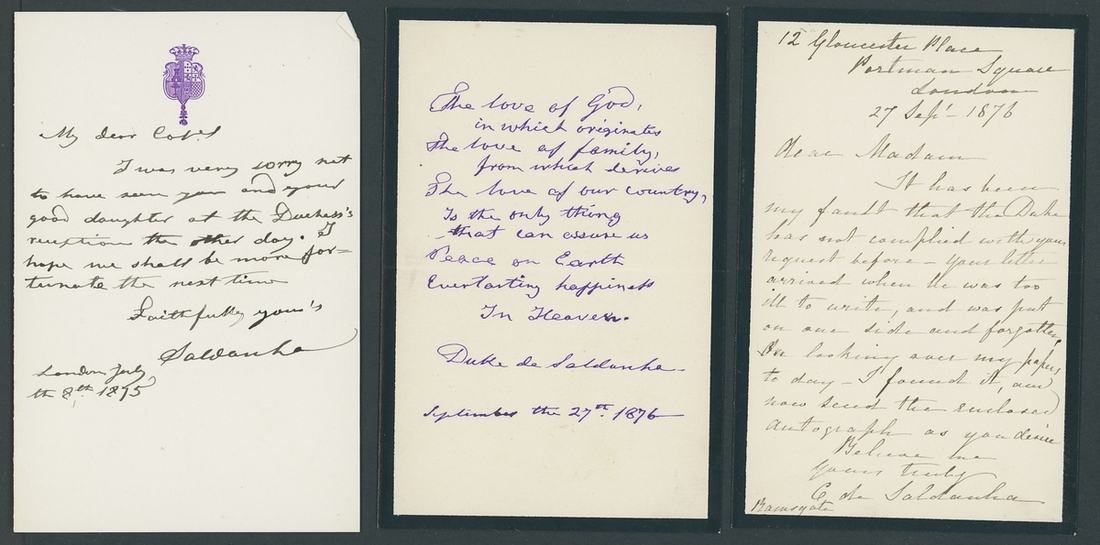 My dear
I was very sorry not
to have seen you and your
good daughter at the Duchess's
reception the other day. I
hope we shall be more for=
tunate the next time
Faithfully your's
Saldanha
London July
the 8th 1875
The love of God,
in which originates
The love of family,
from which derives
The love of our country,
Is the only thing
that can assure us
Peace on Earth
Everlasting happiness
In Heaven.
Duke de Saldanha
September the 27th 1876
12 Gloucester Place
Portman Square
London
27 Sep - 1876
dear Madam
It has been
my fault that the Duke
has not complied with your
request before - your letter
arrived when he was too
ill to write, and was put
on one side and forgotten,
On looking over my papers
to day - I found it, and
now send the enclosed
autograph as you desire
Believe me
Yours truly
C de Saldanha
Ramsgate